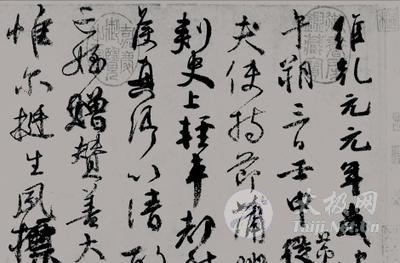 維乾元元年歲
午朔三日壬申
夫使持節蒲州
刺史上輕車都尉
侯真卿以清酌
亡姪贈贊善大
惟爾挺生夙標
太极网